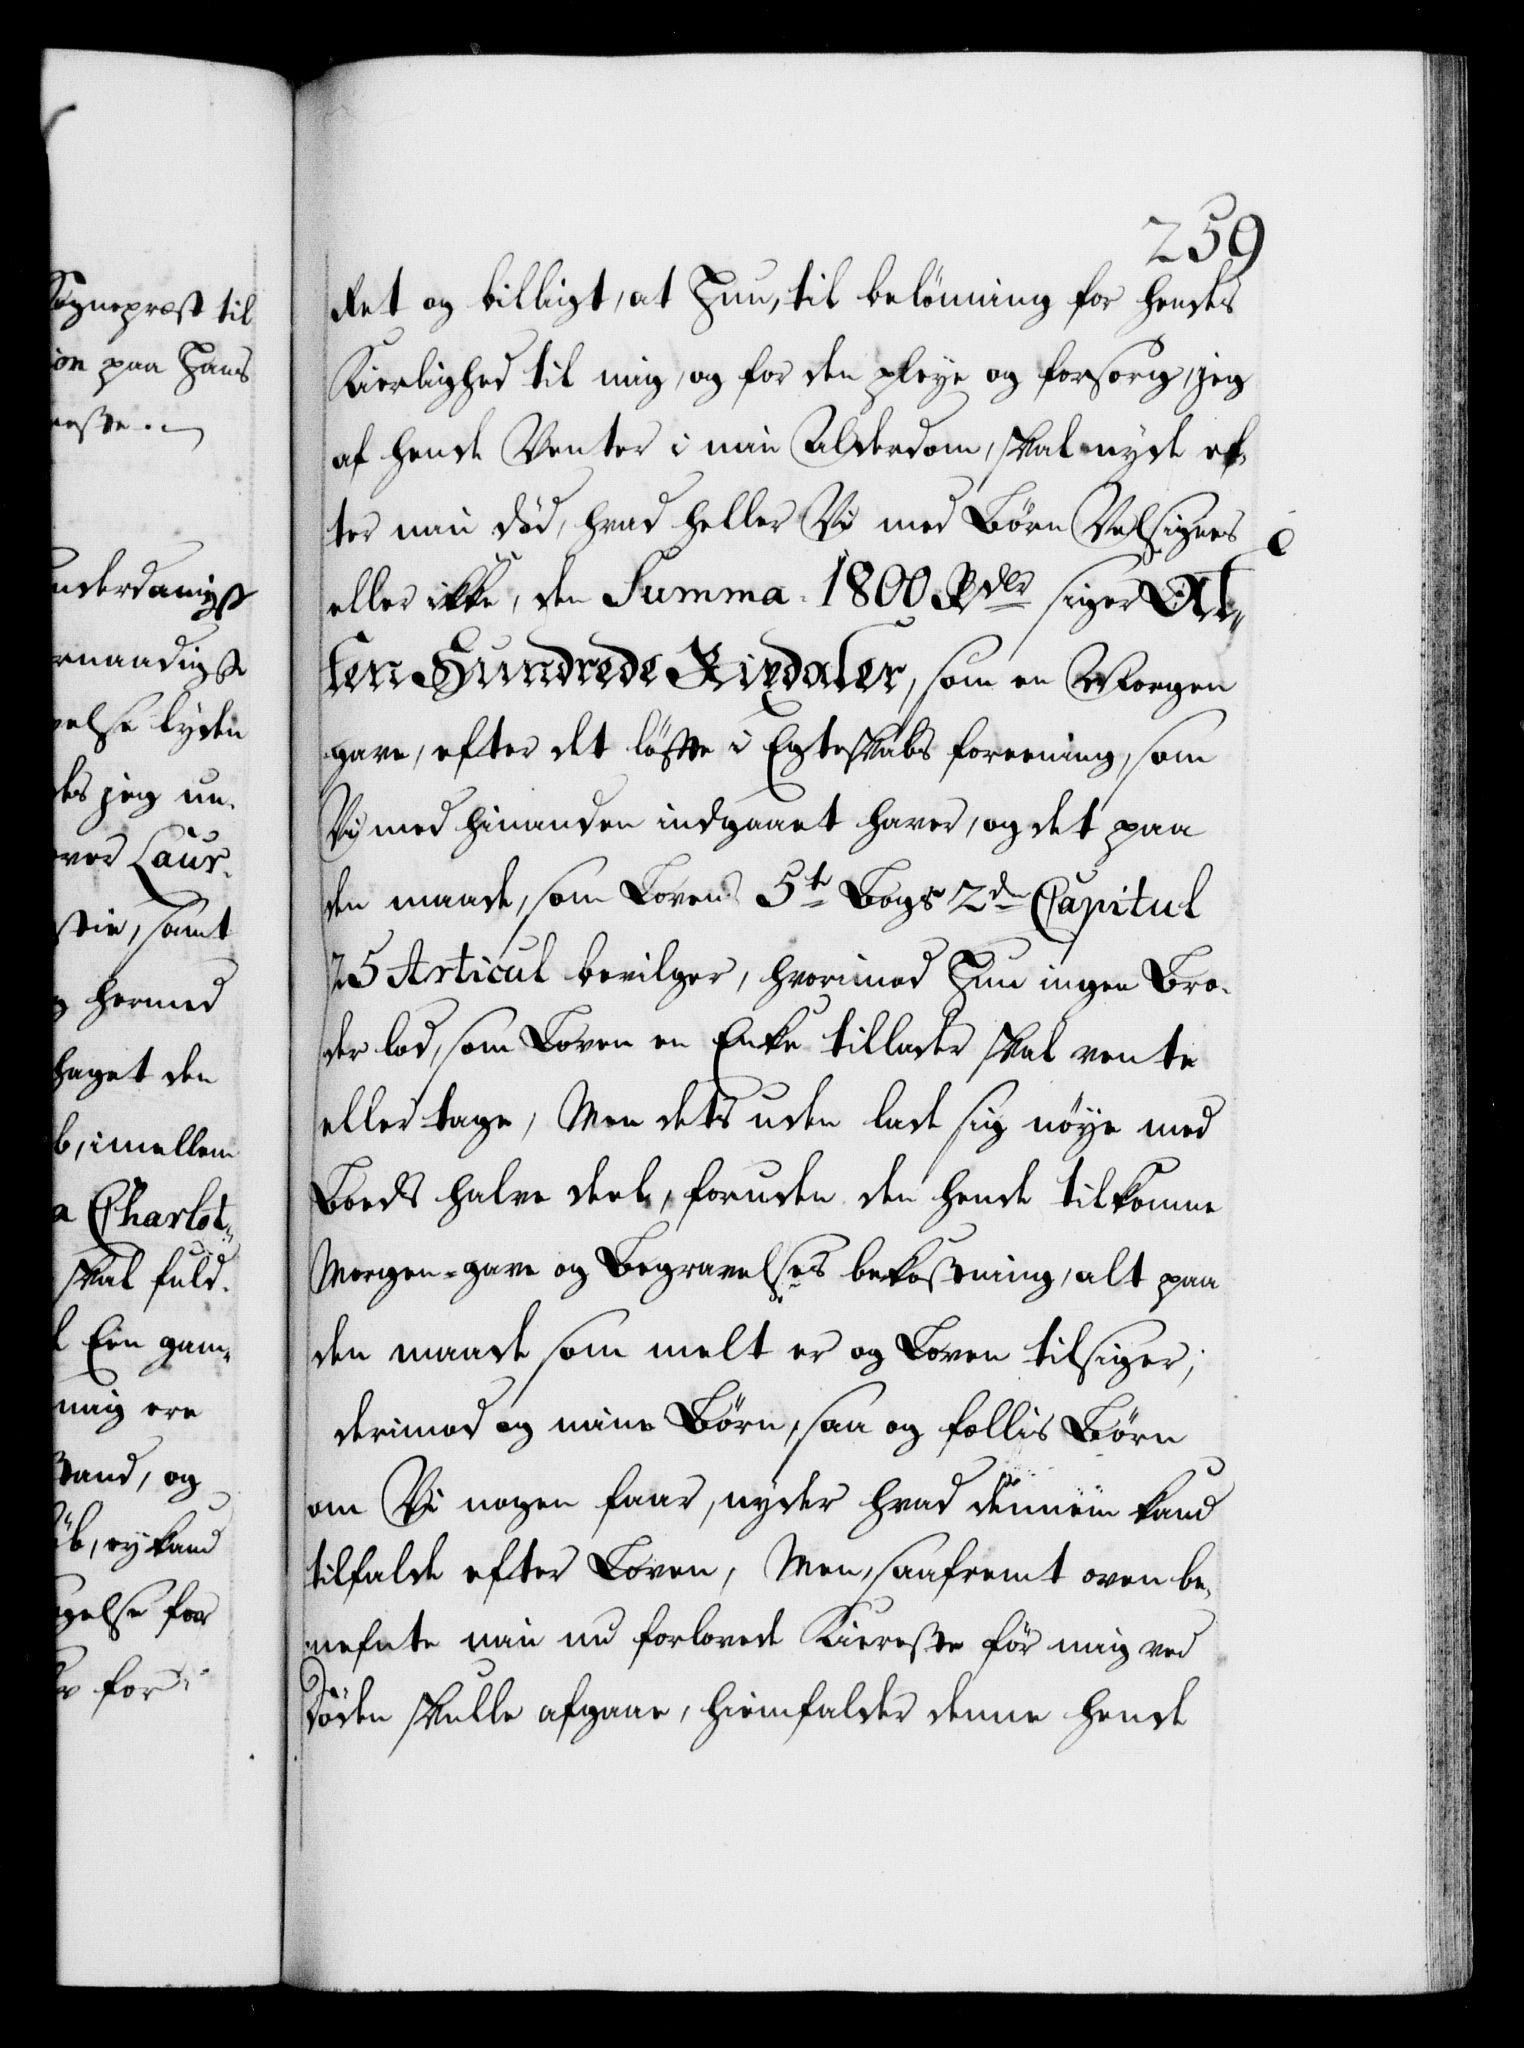 Sognepræst til
ion paa Hans
neste.
underdanigst
ernaadigst
velse lyden
des jeg un-
ver Laur-
stie, samt
g hermed
haget den
b, imellem
a Charlot-
skal fuld-
l Een gam-
mig ere
stand, og
øb, ej kand
gelse for
for
259
Ret og billigt, at Hun, til belönning for hendes
Kierlighed til mig, og for den pleye og forsorg, jeg
af hende Venter i min Alderdom, skal nyde ef-
ter min död, hvad heller Vi med Börn Velsignes
eller ikke, den Summa 1800 Rdlr siger At-
ten Hundrede Rixdaler, som en Morgen
gave, efter det löfte i Egteskabs foreening, som
Vi med hinanden indgaaet haver, og det paa
den maade, som Lovens 5te Bogs 2den Capitul
75 Articul bevilger, hvorimod Hun ingen Bro-
der lod, som Loven en Enke tillader skal vente
eller tage, Men dets uden lade sig nöye med
Boeds halve deel, foruden den hende tilkomne
Morgen-gave og Begravelses bekostning, alt paa
den maade som melt er og Loven tilsiger;
derimod og mine Börn, saa og fællis Börn
om Vi nogen faar, nyder hvad dennem kand
tilfalde efter Loven, Men, saafremt oven be-
nefnte min nu forlovede Kiereste för mig ved
Döden skulle afgaae, hiemfalder denne hende